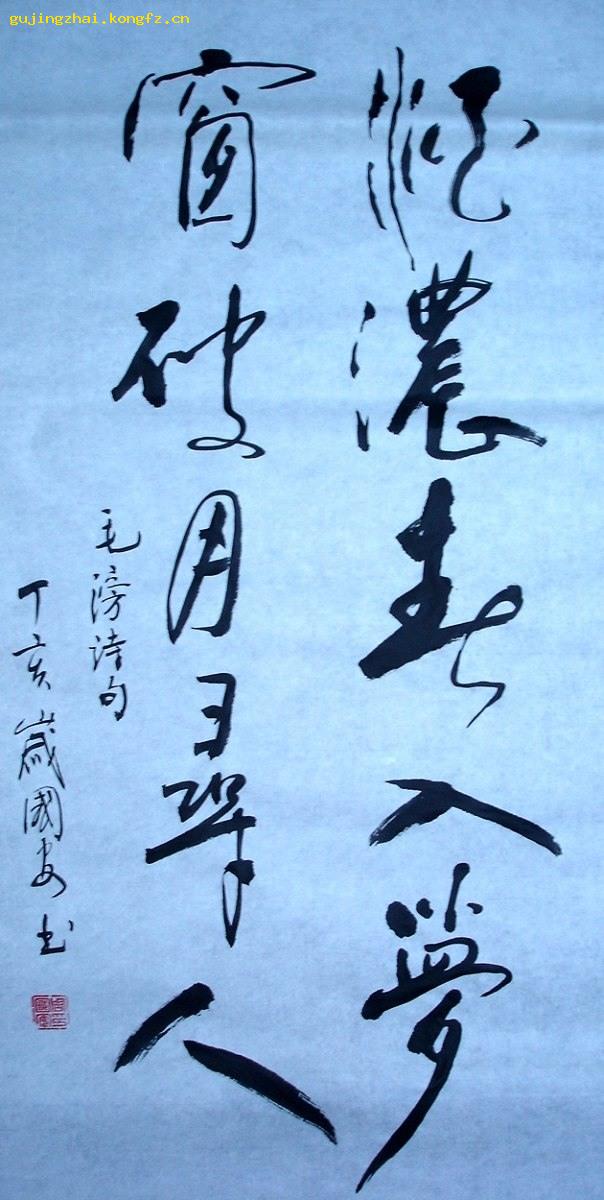 gujingzhai.kongfz.cn
酒濃春入夢
窗破月尋人
毛滂诗句
丁亥歲國安书